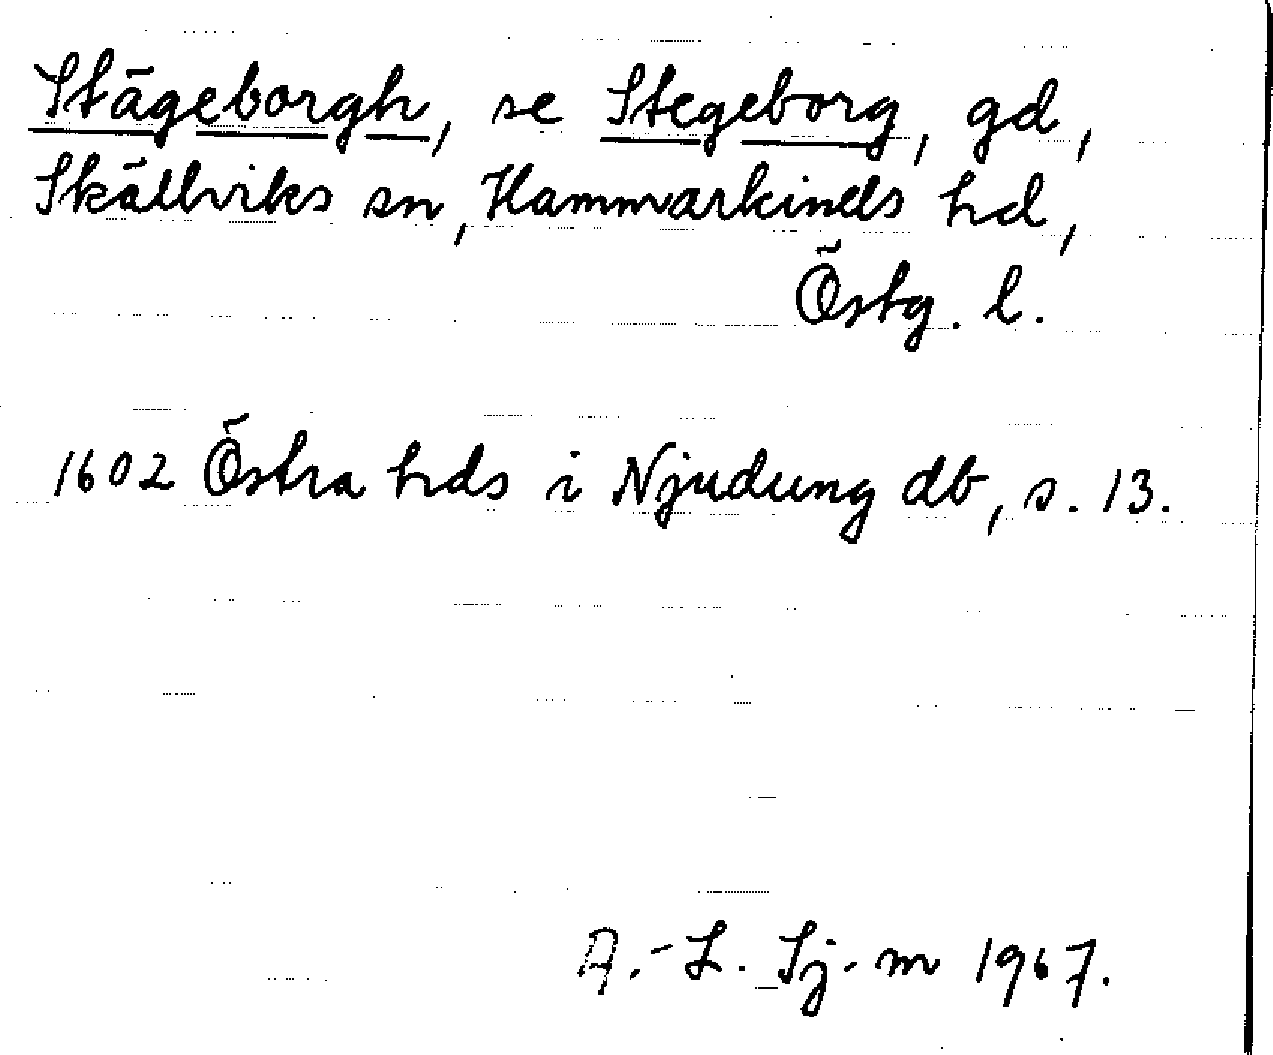 Stägeborgh, se Stegeborg, gd,
Skällviks sn, Hammarkinds hd,
Östg. l.
1602 Östra hds i Njudung db, s. 13.
A.-L. Sj-m 1967.